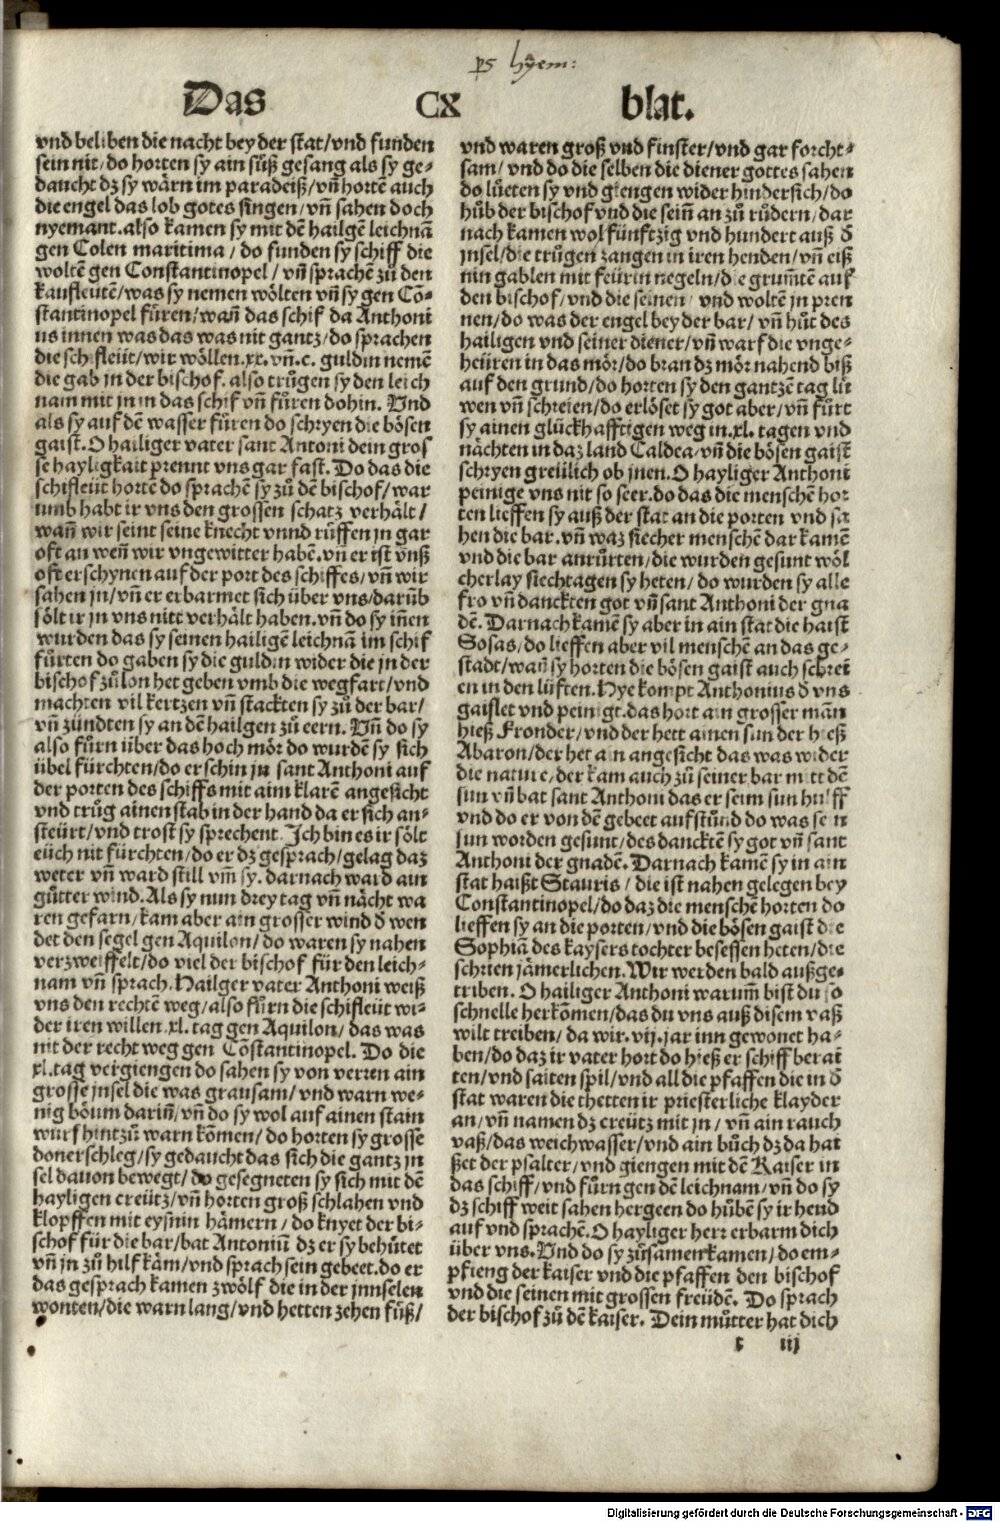 ps hyem:
Das CX blat.
vnd beliben die nacht bey der stat/vnd funden
sein nit/do horten sy ain süß gesang als sy ge⸗
daucht dz sy wärn im paradeiß/vñ hortẽ auch
die engel das lob gotes singen/vñ sahen doch
nyemant.also kamen sy mit dẽ hailgẽ leichnã
gen Colen maritima/do funden sy schiff die
woltẽ gen Constantinopel/vñ sprachẽ zů den
kaufleutẽ/was sy nemen wölten vñ sy gen Cõ⸗
stantinopel füren/wañ das schif da Anthoni
us innen was das was nit gantz/do sprachen
die schifleüt/wir wöllen.xx.vñ.c. guldin nemẽ
die gab in der bischof.also trůgen sy den leich
nam mit in in das schif vñ füren dohin. Vnd
als sy auf dẽ wasser füren do schryen die bösen
gaist.O hailiger vater sant Antoni dein gros
se hayligkait prennt vns gar fast. Do das die
schifleüt hortẽ do sprachẽ sy zů dẽ bischof/war
umb habt ir vns den grossen schatz verhält/
wañ wir seint seine knecht vnnd rüffen jn gar
oft an weñ wir vngewitter habẽ.vñ er ist vnß
oft erschynen auf der port des schiffes/vñ wir
sahen jn/vñ er erbarmet sich über vns/darũb
sölt ir jn vns nitt verhält haben.vñ do sy iñen
wurden das sy seinen hailigẽ leichnã im schif
fürten do gaben sy die guldin wider die jn der
bischof zů lon het geben vmb die wegfart/vnd
machten vil kertzen vñ stackten sy zů der bar/
vñ zündten sy an dẽ hailgen zů eern. Vñ do sy
also fůrn über das hoch mör do wurdẽ sy sich
übel fürchten/do erschin jn sant Anthoni auf
der porten des schiffs mit aim klarẽ angesicht
vnd trůg ainen stab in der hand da er sich an⸗
steürt/vnd trost sy sprechent. Ich bin es ir sölt
eüch nit fürchten/do er dz gesprach/gelag daz
weter vñ ward still vm̃ sy. darnach ward ain
gůtter wind.Als sy nun drey tag vñ nächt wa
ren gefarn/kam aber ain grosser wind ð wen
det den segel gen Aquilon/do waren sy nahen
verzweiffelt/do viel der bischof für den leich⸗
nam vñ sprach.Hailger vater Anthoni weiß
vns den rechtẽ weg/also fůrn die schifleüt wi⸗
der iren willen.xl.tag gen Aquilon/das was
nit der recht weg gen Cõstantinopel. Do die
xl.tag vergiengen do sahen sy von verren ain
grosse jnsel die was grausam/vnd warn we⸗
nig böum dariñ/vñ do sy wol auf ainen stain
wurf hintzů warn kõmen/do horten sy grosse
donerschleg/sy gedaucht das sich die gantz in
sel dauon bewegt/do gesegneten sy sich mit dẽ
hayligen creütz/vñ horten groß schlahen vnd
klopffen mit eysnin hämern/do knyet der bi⸗
schof für die bar/bat Antoniũ dz er sy behůtet
vñ jn zů hilf käm/vnd sprach sein gebeet.do er
das gesprach kamen zwölf die in der jnnselen
wonten/die warn lang/vnd hetten zehen füß/
vnd waren groß vnd finster/vnd gar forcht⸗
sam/vnd do die selben die diener gottes sahen
do lüeten sy vnd giengen wider hindersich/do
hůb der bischof vnd die seiñ an zů rüdern/dar
nach kamen wol fünftzig vnd hundert auß ð
jnsel/die trůgen zangen in iren henden/vñ eiß
nin gablen mit feürin negeln/die grum̃tẽ auf
den bischof/vnd die seinen vnd woltẽ jn pren
nen/do was der engel bey der bar/vñ hůt des
hailigen vnd seiner diener/vñ warf die vnge⸗
heüren in das mör/do bran dz mör nahend biß
auf den grund/do horten sy den gantzẽ tag lü
wen vñ schreien/do erlöset sy got aber/vñ fürt
sy ainen glückhafftigen weg in.xl. tagen vnd
nächten in daz land Caldea/vñ die bösen gaist
schryen greülich ob jnen.O hayliger Anthoni
peinige vns nit so seer.do das die menschẽ hor
ten lieffen sy auß der stat an die porten vnd sa
hen die bar.vñ waz siecher menschẽ dar kamẽ
vnd die bar anrürten/die wurden gesunt wöl
cherlay siechtagen sy heten/do wurden sy alle
fro vñ danckten got vñ sant Anthoni der gna
dẽ. Darnach kamẽ sy aber in ain stat die haist
Sosas/do lieffen aber vil menschẽ an das ge⸗
stadt/wañ sy horten die bösen gaist auch schrei
en in den lüften.Hye kompt Anthonius ð vns
gaislet vnd peinigt.das hort ain grosser mãn
hieß Fronder/vnd der hett ainen sun der hieß
Abaron/der het ain angesicht das was wider
die nature/der kam auch zů seiner bar mitt dẽ
sun vñ bat sant Anthoni das er seim sun hulff
vnd do er von dẽ gebeet aufstůnd do was sein
sun worden gesunt/des dancktẽ sy got vñ sant
Anthoni der gnadẽ. Darnach kamẽ sy in ain
stat haißt Stauris/die ist nahen gelegen bey
Constantinopel/do daz die menschẽ horten do
lieffen sy an die porten/vnd die bösen gaist die
Sophiã des kaysers tochter besessen heten/die
schrien jämerlichen.Wir werden bald außge⸗
triben. O hailiger Anthoni warum̃ bist du so
schnelle herkõmen/das du vns auß disem vaß
wilt treiben/da wir.vij.jar inn gewonet ha⸗
ben/do daz ir vater hort do hieß er schiff berai
ten/vnd saiten spil/vnd all die pfaffen die in ð
stat waren die thetten ir priesterliche klayder
an/vñ namen dz creütz mit jn/vñ ain rauch
vaß/das weichwasser/vnd ain bůch dz da hat
ßet der psalter/vnd giengen mit dẽ Kaiser in
das schiff/vnd fůrn gen dẽ leichnam/vñ do sy
dz schiff weit sahen hergeen do hůbẽ sy ir hend
auf vnd sprachẽ.O hayliger herr erbarm dich
über vns.Vnd do sy zůsamen kamen/do em⸗
pfieng der kaiser vnd die pfaffen den bischof
vnd die seinen mit grossen freüdẽ. Do sprach
der bischof zů dẽ kaiser. Dein můtter hat dich
r iij
Digitalisierung gefördert durch die Deutsche Forschungsgemeinschaft - DFG